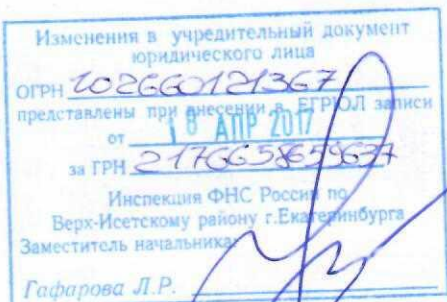 Изменения в учредительный документ
юридического лица
ОГРН 102660121367
представлены при внесении в ЕГРЮЛ записи
от 18 АПР 2017
за ГРН
Инспекция ФНС России по
Верх-Исетскому району г.Екатеринбурга
Заместитель начальника
Гафарова Л.Р.